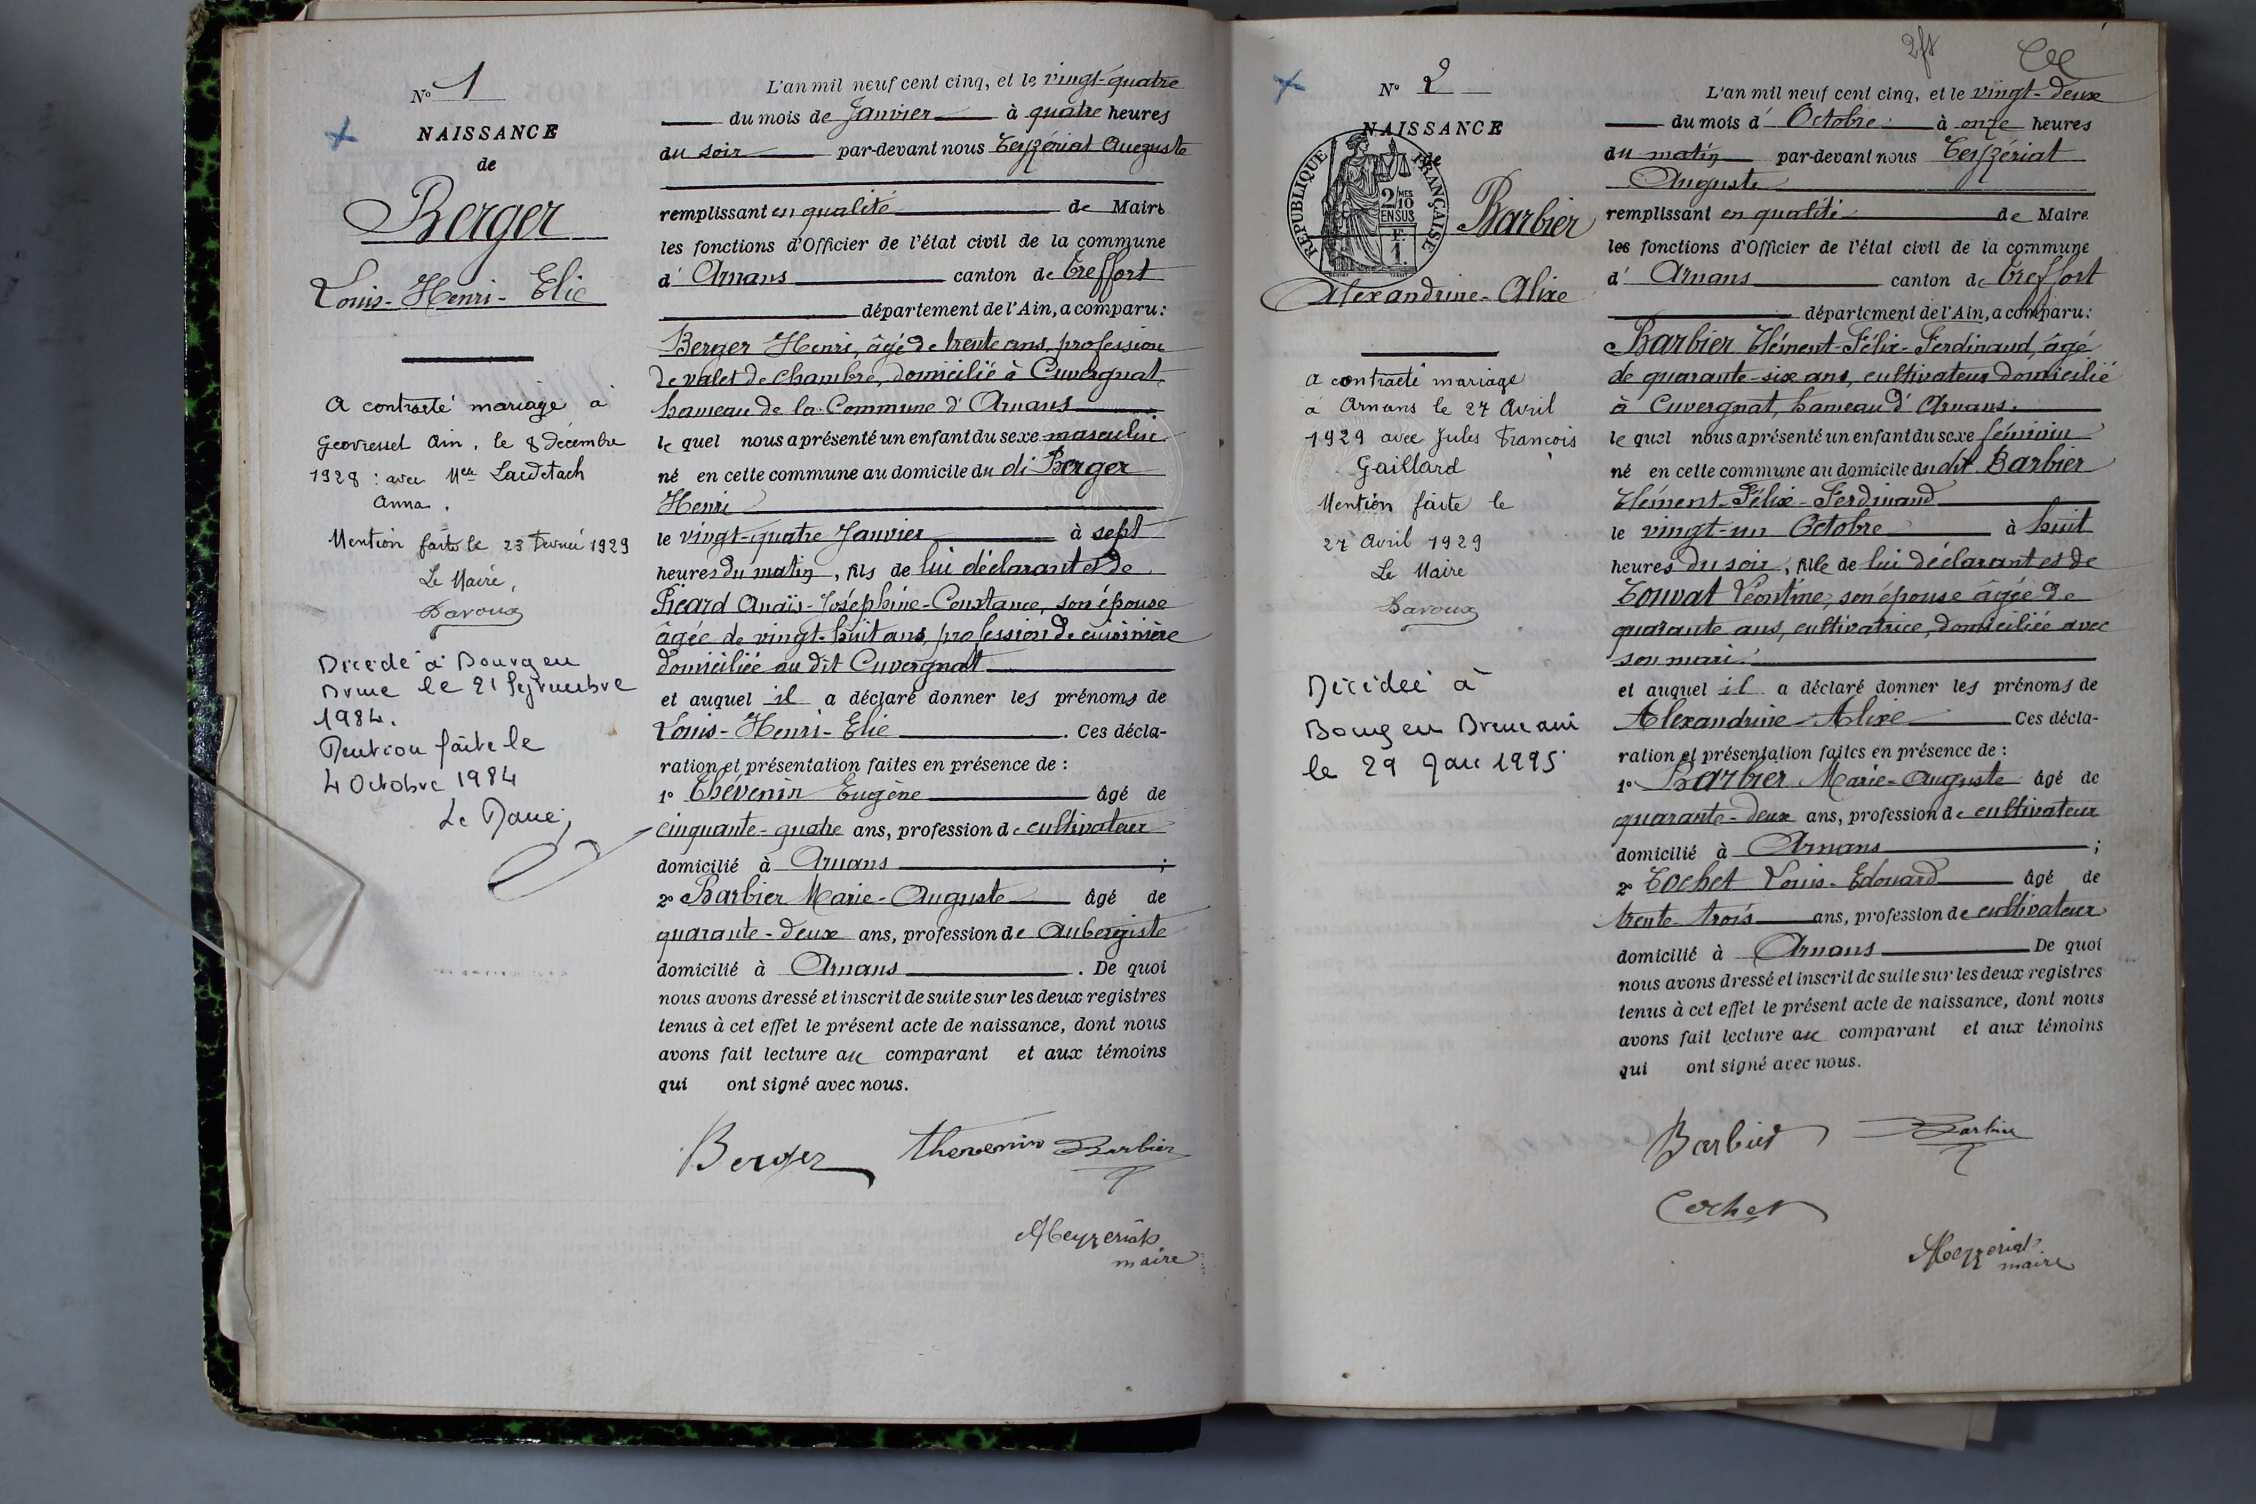 N° 1
NAISSANCE
de
Berger
Louis-Henri-Elie
a contracté mariage à
Geovresset Ain, le 8 décembre
1928 : avec Melle
Anna.
Mention faite le 23 Février 1929
Le Maire,
Décédé à Bourg en
Bresse le 21 Septembre
1984.
Mention faite le
4 Octobre 1984
Le Maire,
L'an mil neuf cent cinq, et le vingt-quatre
du mois de Janvier à quatre heures
du soir par-devant nous Teyzériat Auguste
remplissant en qualité de Maire
les fonctions d'Officier de l'état civil de la commune
d' Arnans canton de Treffort
département de l'Ain, a comparu :
Berger Henri, âgé de trente ans, profession
de valet de chambre, domicilié à Cuvergnat,
hameau de la Commune d'Arnans
le quel nous a présenté un enfant du sexe masculin
né en cette commune au domicile du dit Berger
Henri
le vingt-quatre Janvier à sept
heures du matin, fils de lui déclarant et de
Picard Anaïs-Joséphine-Constance, son épouse
âgée de vingt-huit ans, profession de cuisinière
domiciliée au dit Cuvergnat
et auquel il a déclaré donner les prénoms de
Louis-Henri-Elie. Ces décla-
ration et présentation faites en présence de :
1° Thévenin Eugène âgé de
cinquante-quatre ans, profession de cultivateur
domicilié à Arnans ;
2° Barbier Marie-Auguste âgé de
quarante-deux ans, profession de Aubergiste
domicilié à Arnans. De quoi
nous avons dressé et inscrit de suite sur les deux registres
tenus à cet effet le présent acte de naissance, dont nous
avons fait lecture au comparant et aux témoins
qui ont signé avec nous.
Berger Thevenin Barbier
ATeyzériat
maire
N° 2
NAISSANCE
de
RÉPUBLIQUE FRANÇAISE
2/10 MES
EN SUS
F.
1.
Barbier
Alexandrine-Alixe
a contracté mariage
à Arnans le 27 Avril
1929 avec Jules François
Gaillard
Mention faite le
27 Avril 1929
Le Maire
Décédée à
Bourg en Bresse Ain
le 29 Jan 1995
L'an mil neuf cent cinq, et le vingt-deux
du mois d' Octobre à onze heures
du matin par-devant nous Teyzériat
Auguste
remplissant en qualité de Maire
les fonctions d'Officier de l'état civil de la commune
d' Arnans canton de Treffort
département de l'Ain, a comparu :
Barbier Clément-Félix-Ferdinand, âgé
de quarante-six ans, cultivateur domicilié
à Cuvergnat, hameau d'Arnans,
le quel nous a présenté un enfant du sexe féminin
né en cette commune au domicile du dit Barbier
Clément-Félix-Ferdinand
le vingt-un Octobre à huit
heures du soir, fille de lui déclarant et de
Touvat Léontine, son épouse âgée de
quarante ans, cultivatrice, domiciliée avec
son mari.
et auquel il a déclaré donner les prénoms de
Alexandrine-Alixe Ces décla-
ration et présentation faites en présence de :
1° Barbier Marie-Auguste âgé de
quarante-deux ans, profession de cultivateur
domicilié à Arnans ;
2° Cochet Louis-Edouard âgé de
trente-trois ans, profession de cultivateur
domicilié à Arnans De quoi
nous avons dressé et inscrit de suite sur les deux registres
tenus à cet effet le présent acte de naissance, dont nous
avons fait lecture au comparant et aux témoins
qui ont signé avec nous.
Barbier Barbier
Cochet
ATeyzériat
maire